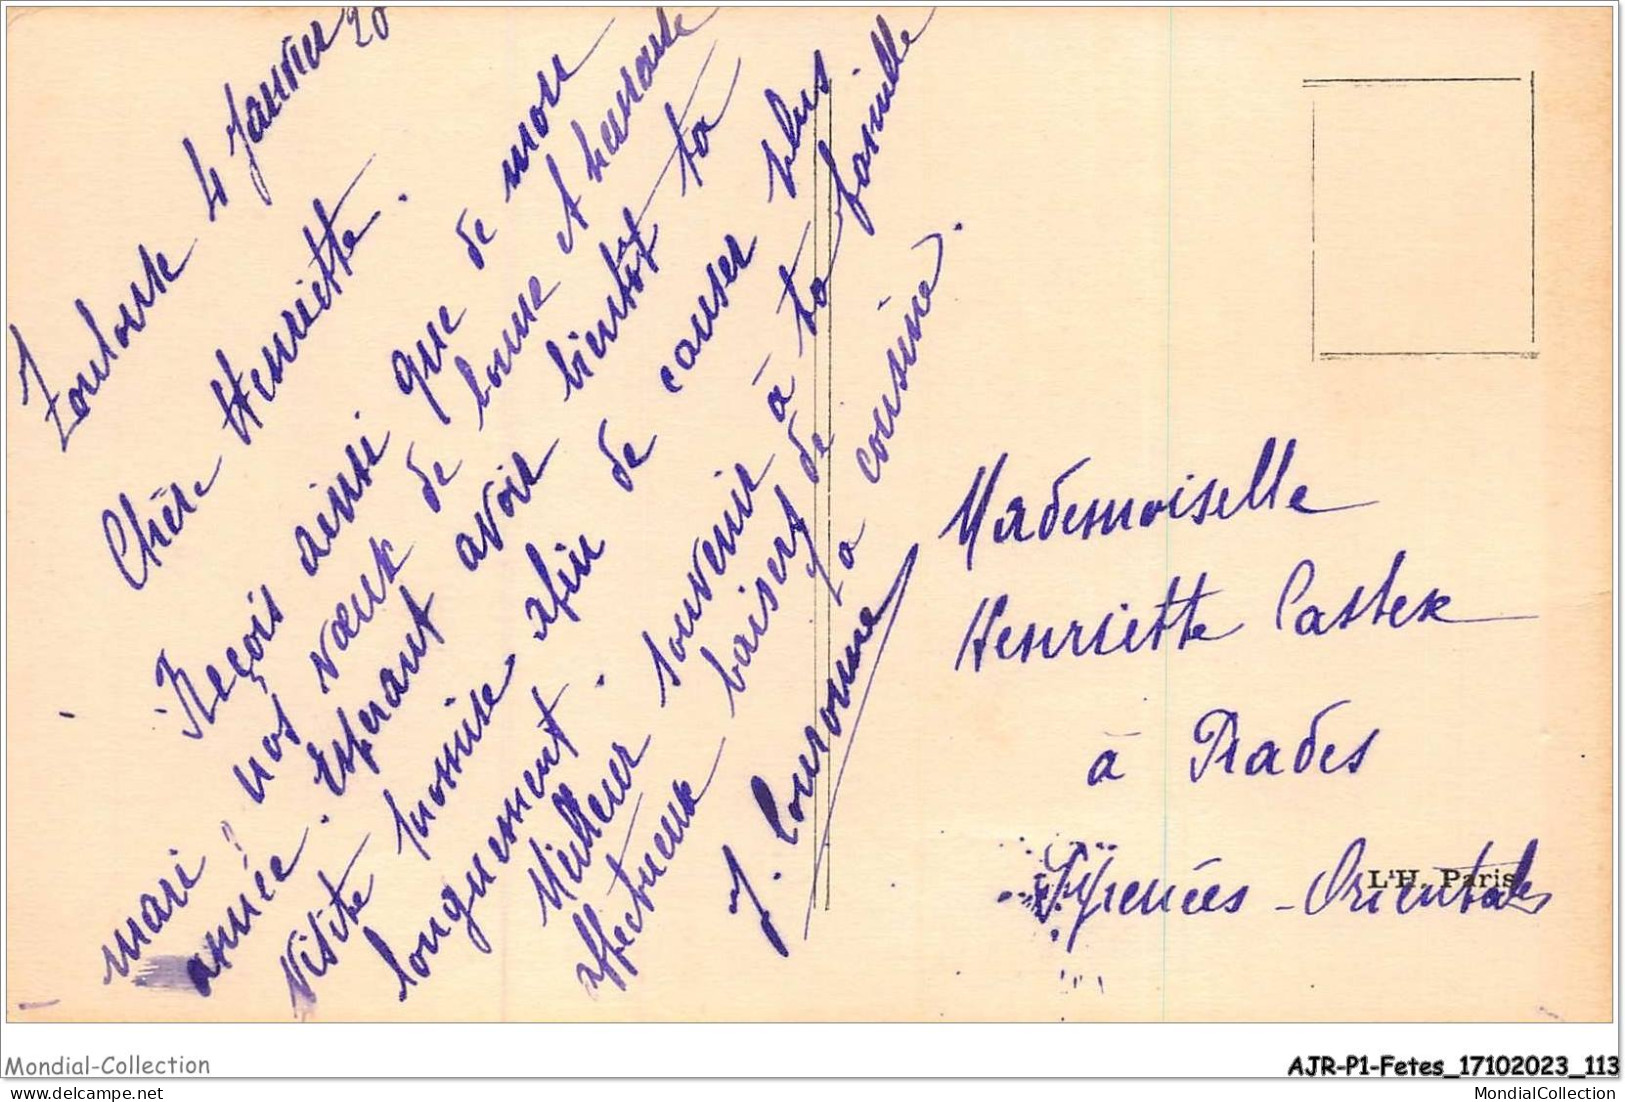 Toulouse 4 Janvier 20
Chère Henriette.
Reçois ainsi que de mon
mari, nos vœux de bonne et heureuse
année. Espérant avoir bientôt ta
visite promise afin de causer plus
longuement.
Meilleur souvenir à ta famille
affectueux baisers de
ta cousine.
J.
Mademoiselle
Henriette Castex
à Prades
Pyrénées-Orientales
L'H. Paris
Mondial-Collection
AJR-P1-Fetes_17102023_113
delcampe.net
MondialCollection